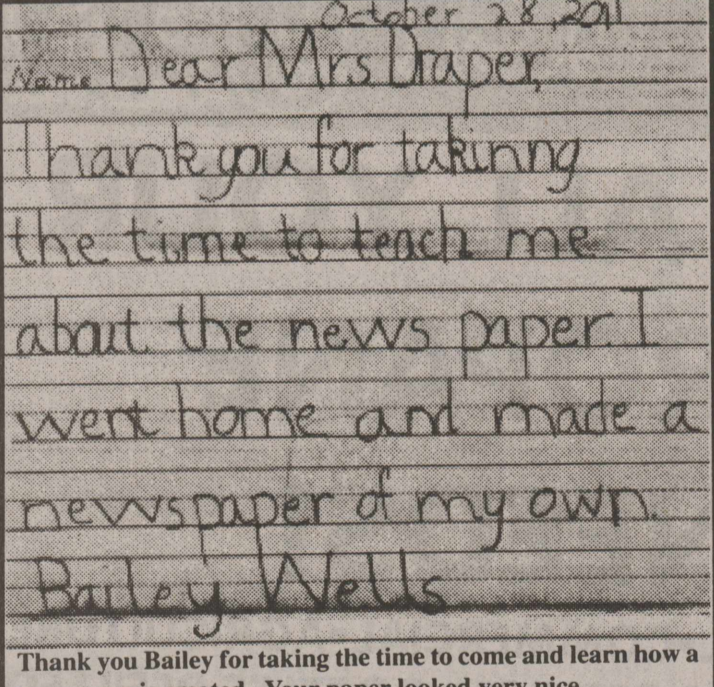 October 28, 2011
Name Dear Mrs Draper,
Thank you for takinng
the time to teach me
about the news paper I
went home and made a
newspaper of my own.
Bailey Wells
Thank you Bailey for taking the time to come and learn how a
Your paper looked very nice